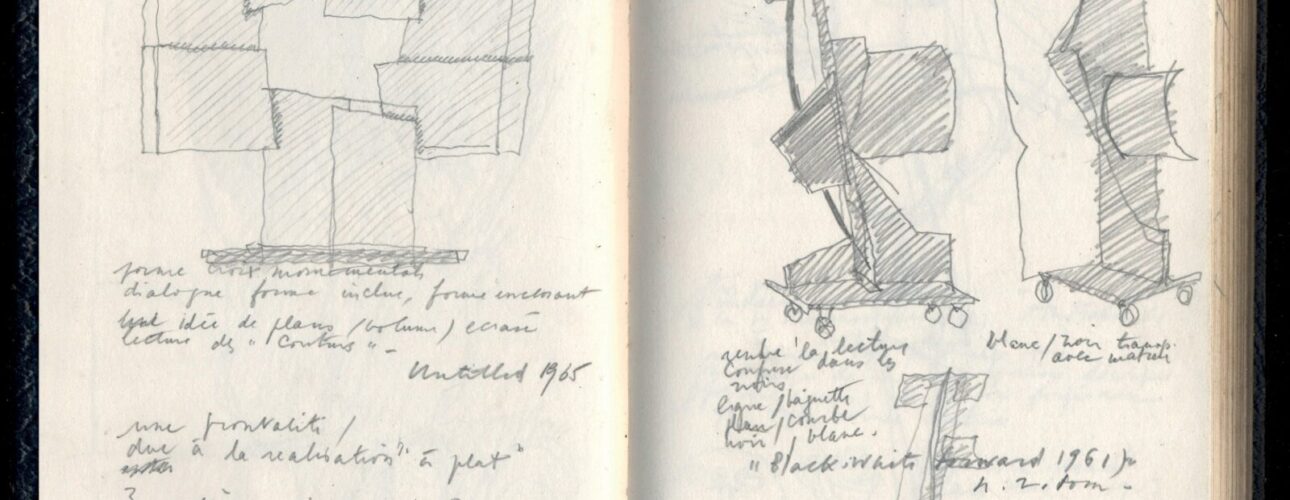 forme croix monumentale
dialogue forme inclue, forme enclosant
idée de plans / volume / écrasé
lecture des "contours" -
Untitled 1965
une frontalité /
due à la realisation "à plat"
rendre la lecture
confuse dans les
noirs
ligne / baguette
plan / courbe
noir / blanc.
blanc / noir transp.
avec
"Black White 1961